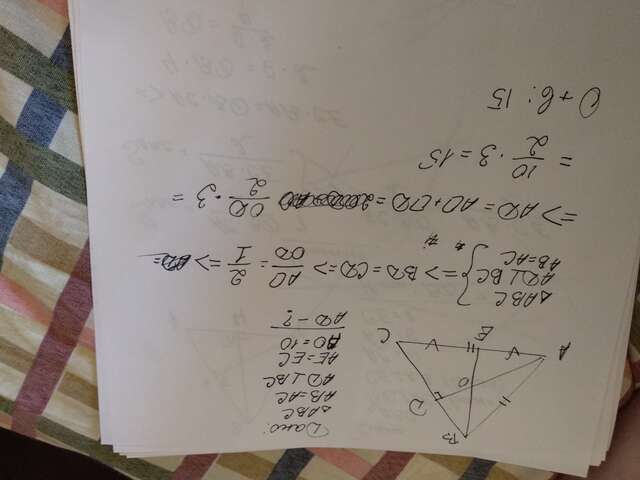 B
D
O
A
E
C
Дано:
△ABC
AB=AC
AD⊥BC
AE=EC
AO=10
AD-?
△ABC
AD⊥BC
AB=AC
=> BD=CD=> AO/OD = 2/1 =>
=> AD=AO+OD= OD/2 · 3 =
= 10/2 · 3 = 15
Отв: 15